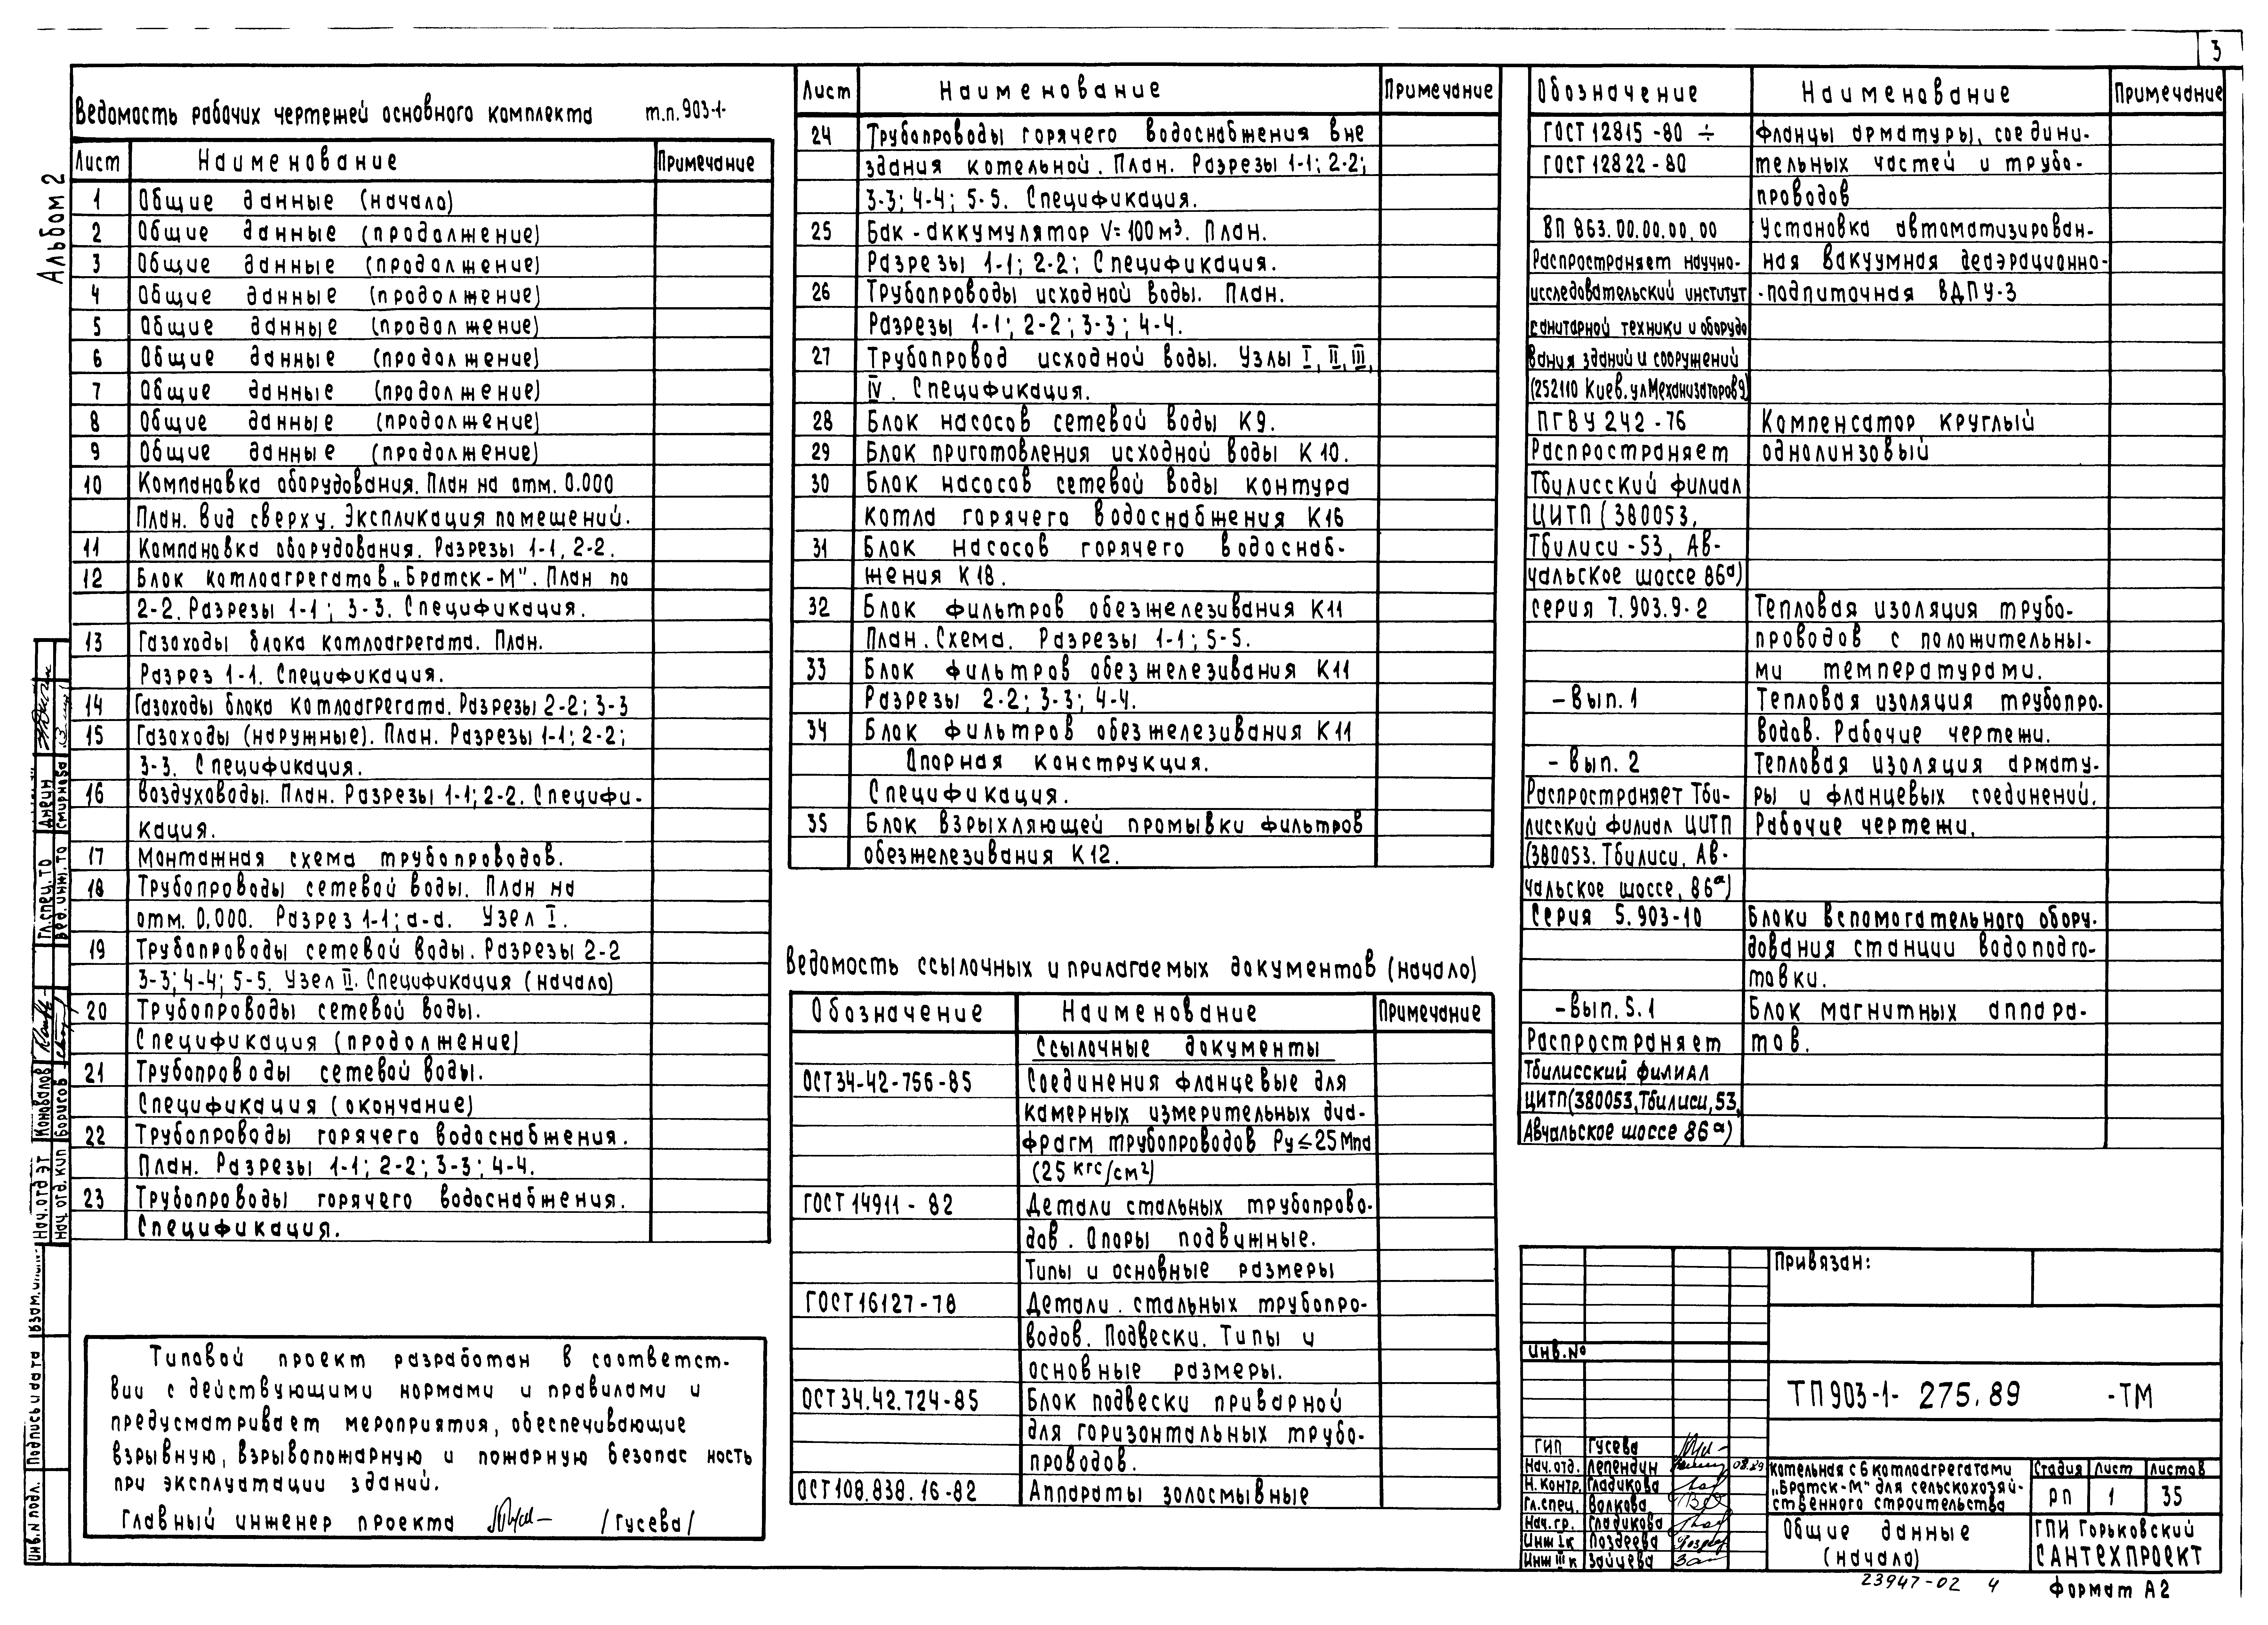 3
Альбом 2
Ведомость рабочих чертежей основного комплекта т.п. 903-1-
Лист Наименование Примечание
1 Общие данные (начало)
2 Общие данные (продолжение)
3 Общие данные (продолжение)
4 Общие данные (продолжение)
5 Общие данные (продолжение)
6 Общие данные (продолжение)
7 Общие данные (продолжение)
8 Общие данные (продолжение)
9 Общие данные (продолжение)
10 Компановка оборудования. План на отм. 0.000
План. Вид сверху. Экспликация помещений.
11 Компановка оборудования. Разрезы 1-1, 2-2.
12 Блок котлоагрегатов „Братск-М". План по
2-2. Разрезы 1-1; 3-3. Спецификация.
13 Газоходы блока котлоагрегата. План.
Разрез 1-1. Спецификация.
14 Газоходы блока котлоагрегата. Разрезы 2-2; 3-3
15 Газоходы (наружные). План. Разрезы 1-1; 2-2;
3-3. Спецификация.
16 Воздуховоды. План. Разрезы 1-1; 2-2. Специфи-
кация.
17 Монтажная схема трубопроводов.
18 Трубопроводы сетевой воды. План на
отм. 0,000. Разрез 1-1; а-а. Узел I.
19 Трубопроводы сетевой воды. Разрезы 2-2
3-3; 4-4; 5-5. Узел II. Спецификация (начало)
20 Трубопроводы сетевой воды.
Спецификация (продолжение)
21 Трубопроводы сетевой воды.
Спецификация (окончание)
22 Трубопроводы горячего водоснабжения.
План. Разрезы 1-1; 2-2; 3-3; 4-4.
23 Трубопроводы горячего водоснабжения.
Спецификация.
Типовой проект разработан в соответст-
вии с действующими нормами и правилами и
предусматривает мероприятия, обеспечивающие
взрывную, взрывопожарную и пожарную безопас ность
при эксплуатации зданий.
Главный инженер проекта /Гусева/
Лист Наименование Примечание
24 Трубопроводы горячего водоснабжения вне
здания котельной. План. Разрезы 1-1; 2-2;
3-3; 4-4; 5-5. Спецификация.
25 Бак-аккумулятор V=100м³. План.
Разрезы 1-1; 2-2; Спецификация.
26 Трубопроводы исходной воды. План.
Разрезы 1-1; 2-2; 3-3; 4-4.
27 Трубопровод исходной воды. Узлы I, II, III,
IV. Спецификация.
28 Блок насосов сетевой воды К9.
29 Блок приготовления исходной воды К10.
30 Блок насосов сетевой воды контура
котла горячего водоснабжения К16
31 Блок насосов горячего водоснаб-
жения К18.
32 Блок фильтров обезжелезивания К11
План. Схема. Разрезы 1-1; 5-5.
33 Блок фильтров обезжелезивания К11
Разрезы 2-2; 3-3; 4-4.
34 Блок фильтров обезжелезивания К11
Опорная конструкция.
Спецификация.
35 Блок взрыхляющей промывки фильтров
обезжелезивания К12.
Ведомость ссылочных и прилагаемых документов (начало)
Обозначение Наименование Примечание
Ссылочные документы
ОСТ 34-42-756-85 Соединения фланцевые для
камерных измерительных диа-
фрагм трубопроводов Ру≤25Мпа
(25 кгс/см²)
ГОСТ 14911-82 Детали стальных трубопрово-
дов. Опоры подвижные.
Типы и основные размеры
ГОСТ 16127-78 Детали стальных трубопро-
водов. Подвески. Типы и
основные размеры.
ОСТ 34.42.724-85 Блок подвески приварной
для горизонтальных трубо-
проводов.
ОСТ 108.838.16-82 Аппараты золосмывные
Обозначение Наименование Примечание
ГОСТ 12815-80 ÷ Фланцы арматуры, соедини-
ГОСТ 12822-80 тельных частей и трубо-
проводов
ВП 863.00.00.00.00 Установка автоматизирован-
Распространяет научно- ная вакуумная деаэрационно-
исследовательский институт -подпиточная ВДПУ-3
санитарной техники и оборудо
вания зданий и сооружений
(252110 Киев. ул Механизаторов 9)
ПГВУ 242-76 Компенсатор круглый
Распространяет однолинзовый
Тбилисский филиал
ЦИТП (380053,
Тбилиси-53, Ав-
чальское шоссе 86а)
серия 7.903.9-2 Тепловая изоляция трубо-
проводов с положительны-
ми температурами.
-Вып.1 Тепловая изоляция трубопро-
водов. Рабочие чертежи.
- Вып. 2 Тепловая изоляция армату-
Распространяет Тби- ры и фланцевых соединений.
лисский филиал ЦИТП Рабочие чертежи.
(380053. Тбилиси, Ав-
чальское шоссе, 86а)
Серия 5.903-10 Блоки вспомогательного обору-
дования станции водоподго-
товки.
-Вып. 5.1 Блок магнитных аппара-
Распространяет тов.
Тбилисский филиал
ЦИТП (380053, Тбилиси, 53,
Авчальское шоссе 86а)
Привязан:
Инв.№
ТП 903-1- 275.89 -ТМ
ГИП Гусева
Нач.отд. Лепендин 08.89
Н.контр. Гладикова
Гл.спец. Волкова
Нач.гр. Гладикова
Инж I к Поздеева
Инж III к Зайцева
Котельная с 6 котлоагрегатами
„Братск-М" для сельскохозяй-
ственного строительства
Стадия Лист Листов
РП 1 35
Общие данные
(начало)
ГПИ Горьковский
САНТЕХПРОЕКТ
23947-02 4
Формат А2
Гл.спец. ТО Днеин
Вед. инж. ТО Смирнова
Нач. отд ЭТ Коновалов
Нач. отд. КИП Борисов
Инв.N подл. Подпись и дата Взам.